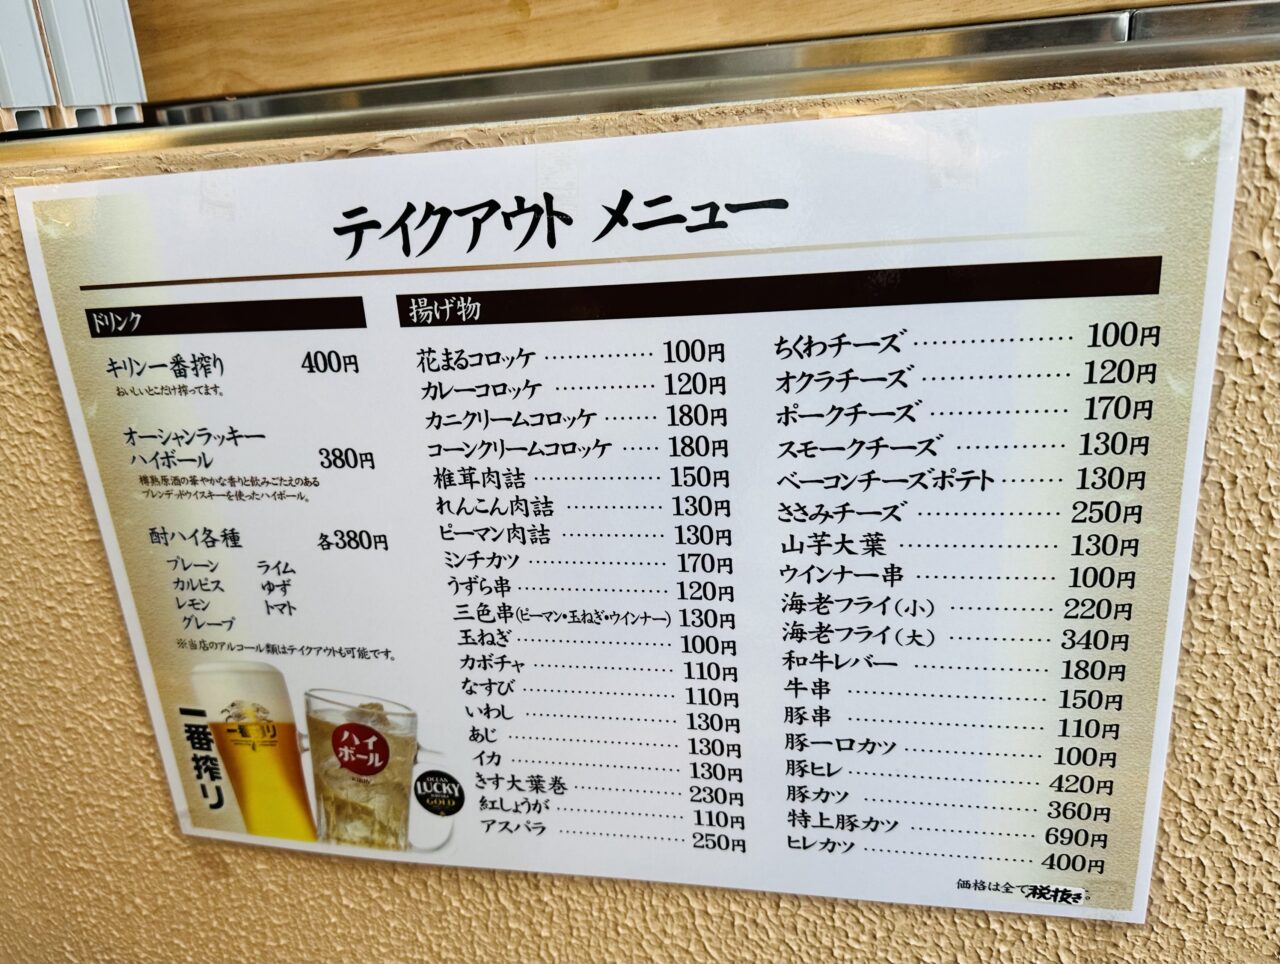 テイクアウト メニュー
ドリンク
キリン一番搾り 400円
おいしいとこだけ搾ってます。
オーシャンラッキー
ハイボール 380円
樽熟原酒の華やかな香りと飲みごたえのある
ブレンデッドウイスキーを使ったハイボール。
酎ハイ各種 各380円
プレーン ライム
カルピス ゆず
レモン トマト
グレープ
※当店のアルコール類はテイクアウトも可能です。
一番搾り
一番搾り
ハイ
ボール
KIRIN
OCEAN
LUCKY
GOLD
揚げ物
花まるコロッケ 100円
カレーコロッケ 120円
カニクリームコロッケ 180円
コーンクリームコロッケ 180円
椎茸肉詰 150円
れんこん肉詰 130円
ピーマン肉詰 130円
ミンチカツ 170円
うずら串 120円
三色串(ピーマン・玉ねぎ・ウインナー) 130円
玉ねぎ 100円
カボチャ 110円
なすび 110円
いわし 130円
あじ 130円
イカ 130円
きす大葉巻 230円
紅しょうが 110円
アスパラ 250円
ちくわチーズ 100円
オクラチーズ 120円
ポークチーズ 170円
スモークチーズ 130円
ベーコンチーズポテト 130円
ささみチーズ 250円
山芋大葉 130円
ウインナー串 100円
海老フライ(小) 220円
海老フライ(大) 340円
和牛レバー 180円
牛串 150円
豚串 110円
豚一口カツ 100円
豚ヒレ 420円
豚カツ 360円
特上豚カツ 690円
ヒレカツ 400円
価格は全て税抜き。